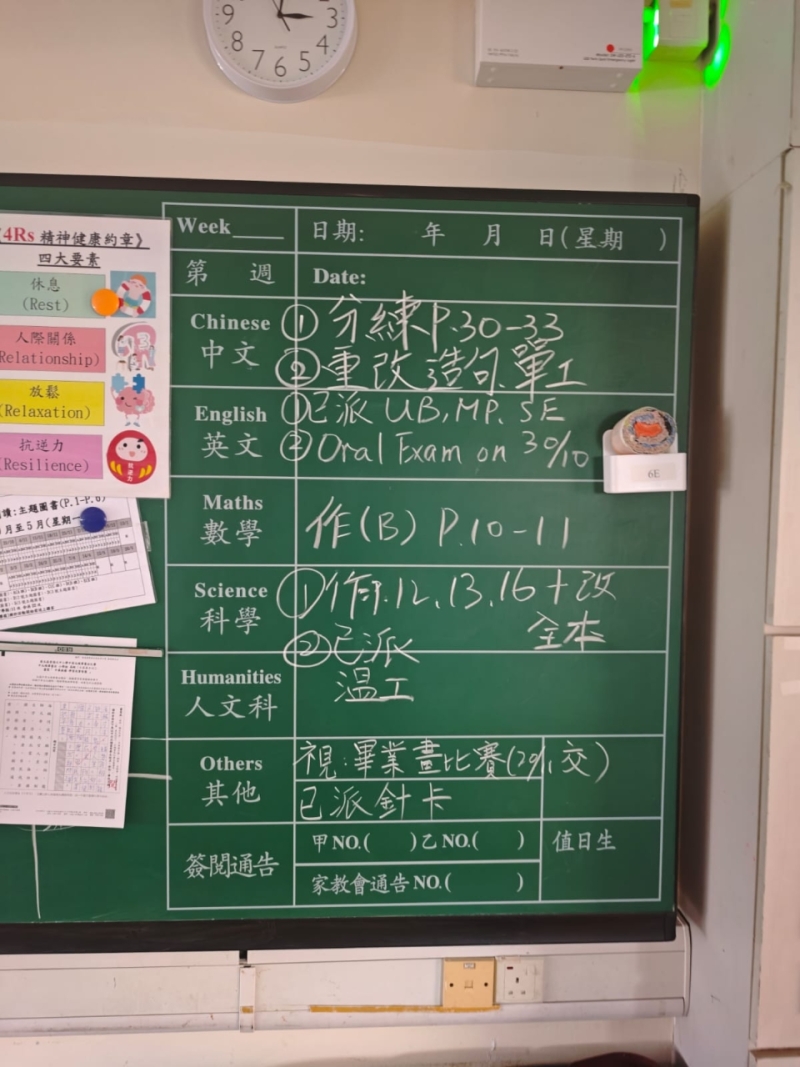 9 3
8 4
7 6 5
《4Rs 精神健康約章》
四大要素
休息
(Rest)
人際關係
(Relationship)
放鬆
(Relaxation)
抗逆力
(Resilience)
主題圖書(P.1-P.6)
月至5月(星期一
Week____ 日期: 年 月 日(星期 )
第 週 Date:
Chinese ① 分練P.30-33
中文 ② 重改造句、單工
English ① 已派 UB, MP, SE
英文 ② Oral Exam on 30/10
6E
Maths
數學 作(B) P.10-11
Science ① 作P.12, 13, 16 + 改
科學 全本
② 已派
Humanities 溫工
人文科
Others 視:畢業畫比賽(29/1交)
其他 已派針卡
簽閱通告 甲NO.( ) 乙NO.( ) 值日生
家教會通告NO.( )